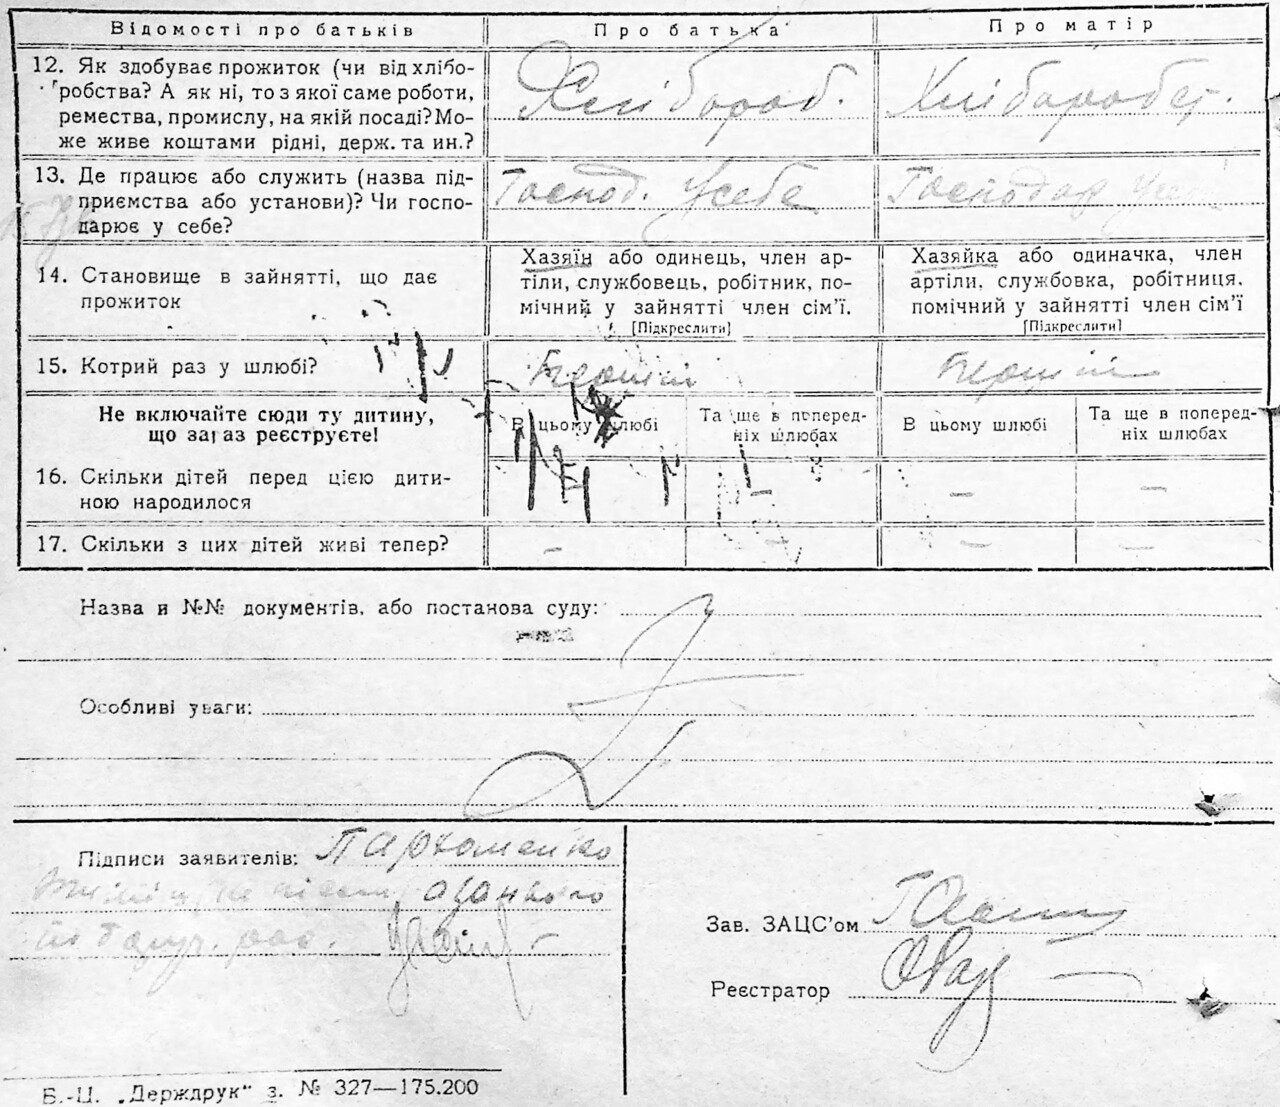 Відомості про батьків Про батька Про матір
12. Як здобуває прожиток (чи від хлібо-
робства? А як ні, то з якої саме роботи,
ремества, промислу, на якій посаді? Мо-
же живе коштами рідні, держ. та ин.?
Хлібороб. Хлібороб
13. Де працює або служить (назва під-
приємства або установи)? Чи госпо-
дарює у себе?
Господ. у себе Господар у
14. Становище в зайнятті, що дає
прожиток
Хазяїн або одинець, член ар-
тіли, службовець, робітник, по-
мічний у зайнятті член сім'ї.
[Підкреслити]
Хазяйка або одиначка, член
артіли, службовка, робітниця,
помічний у зайнятті член сім'ї
[Підкреслити]
15. Котрий раз у шлюбі?
Не включайте сюди ту дитину,
що зараз реєструєте!
В цьому шлюбі
Та ще в поперед-
ніх шлюбах
В цьому шлюбі
Та ще в поперед-
ніх шлюбах
16. Скільки дітей перед цією дити-
ною народилося
– – –
17. Скільки з цих дітей живі тепер?
– – –
Назва и №№ документів, або постанова суду:
Особливі уваги:
Підписи заявителів: Пархоменко
Зав. ЗАЦС'ом
Реєстратор
Б.-Ц. „Держдрук" з. № 327—175.200